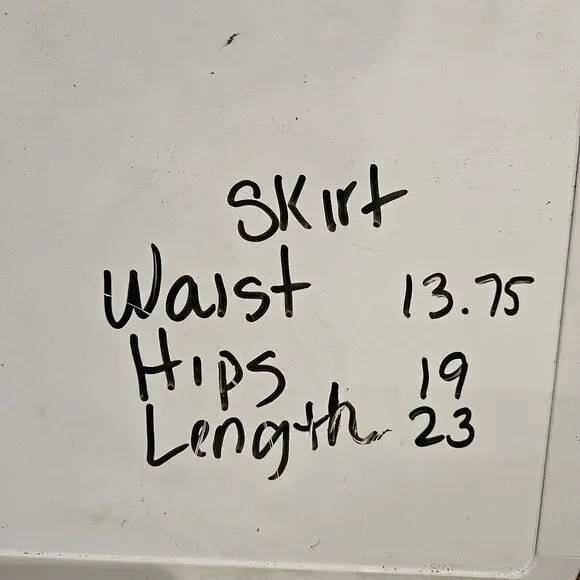 Skirt
Waist 13.75
Hips 19
Length 23